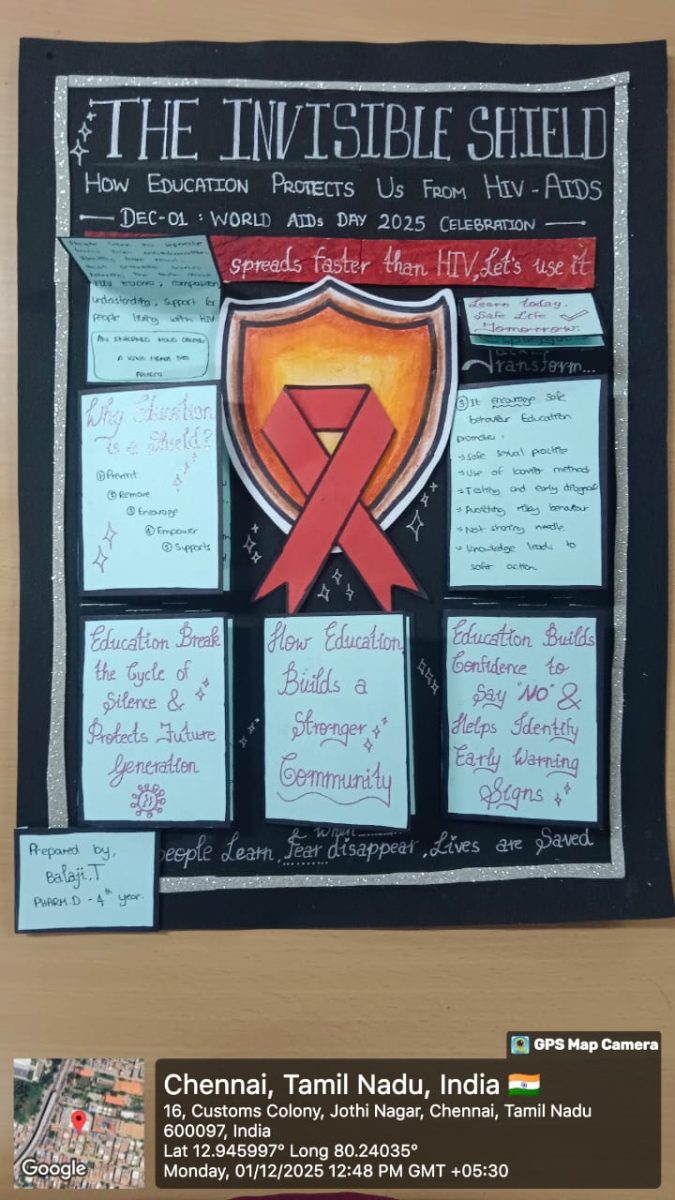 THE INVISIBLE SHIELD
HOW EDUCATION PROTECTS US FROM HIV - AIDS
DEC-01 : WORLD AIDS DAY 2025 CELEBRATION
spreads faster than HIV, Let's use it
HIV reduces,
understanding, support for
people living with HIV
AN INFORMED MIND CREATES
A KIND
Learn today.
Safe Life
Tomorrow.
Transform...
Why Education
is a Shield?
① Prevent
② Remove
③ Encourage
④ Empower
⑤ Supports
③ It encourage safe
behaviour Education
promotes:
→ Safe sexual practice
→ Use of barrier methods
→ Testing and early diagnosis
→ Avoiding risky behaviour
→ Not sharing needle
→ Knowledge leads to
safer action.
Education Break
the Cycle of
Silence &
Protects Future
Generation
How Education
Builds a
Stronger
Community
Education Builds
Confidence to
Say "NO" &
Helps Identify
Early Warning
Signs
& When
people Learn, Fear disappear, Lives are Saved
Prepared by,
Balaji.T
PHARM.D - 4th year.
GPS Map Camera
Chennai, Tamil Nadu, India
16, Customs Colony, Jothi Nagar, Chennai, Tamil Nadu
600097, India
Lat 12.945997° Long 80.24035°
Monday, 01/12/2025 12:48 PM GMT +05:30
Google